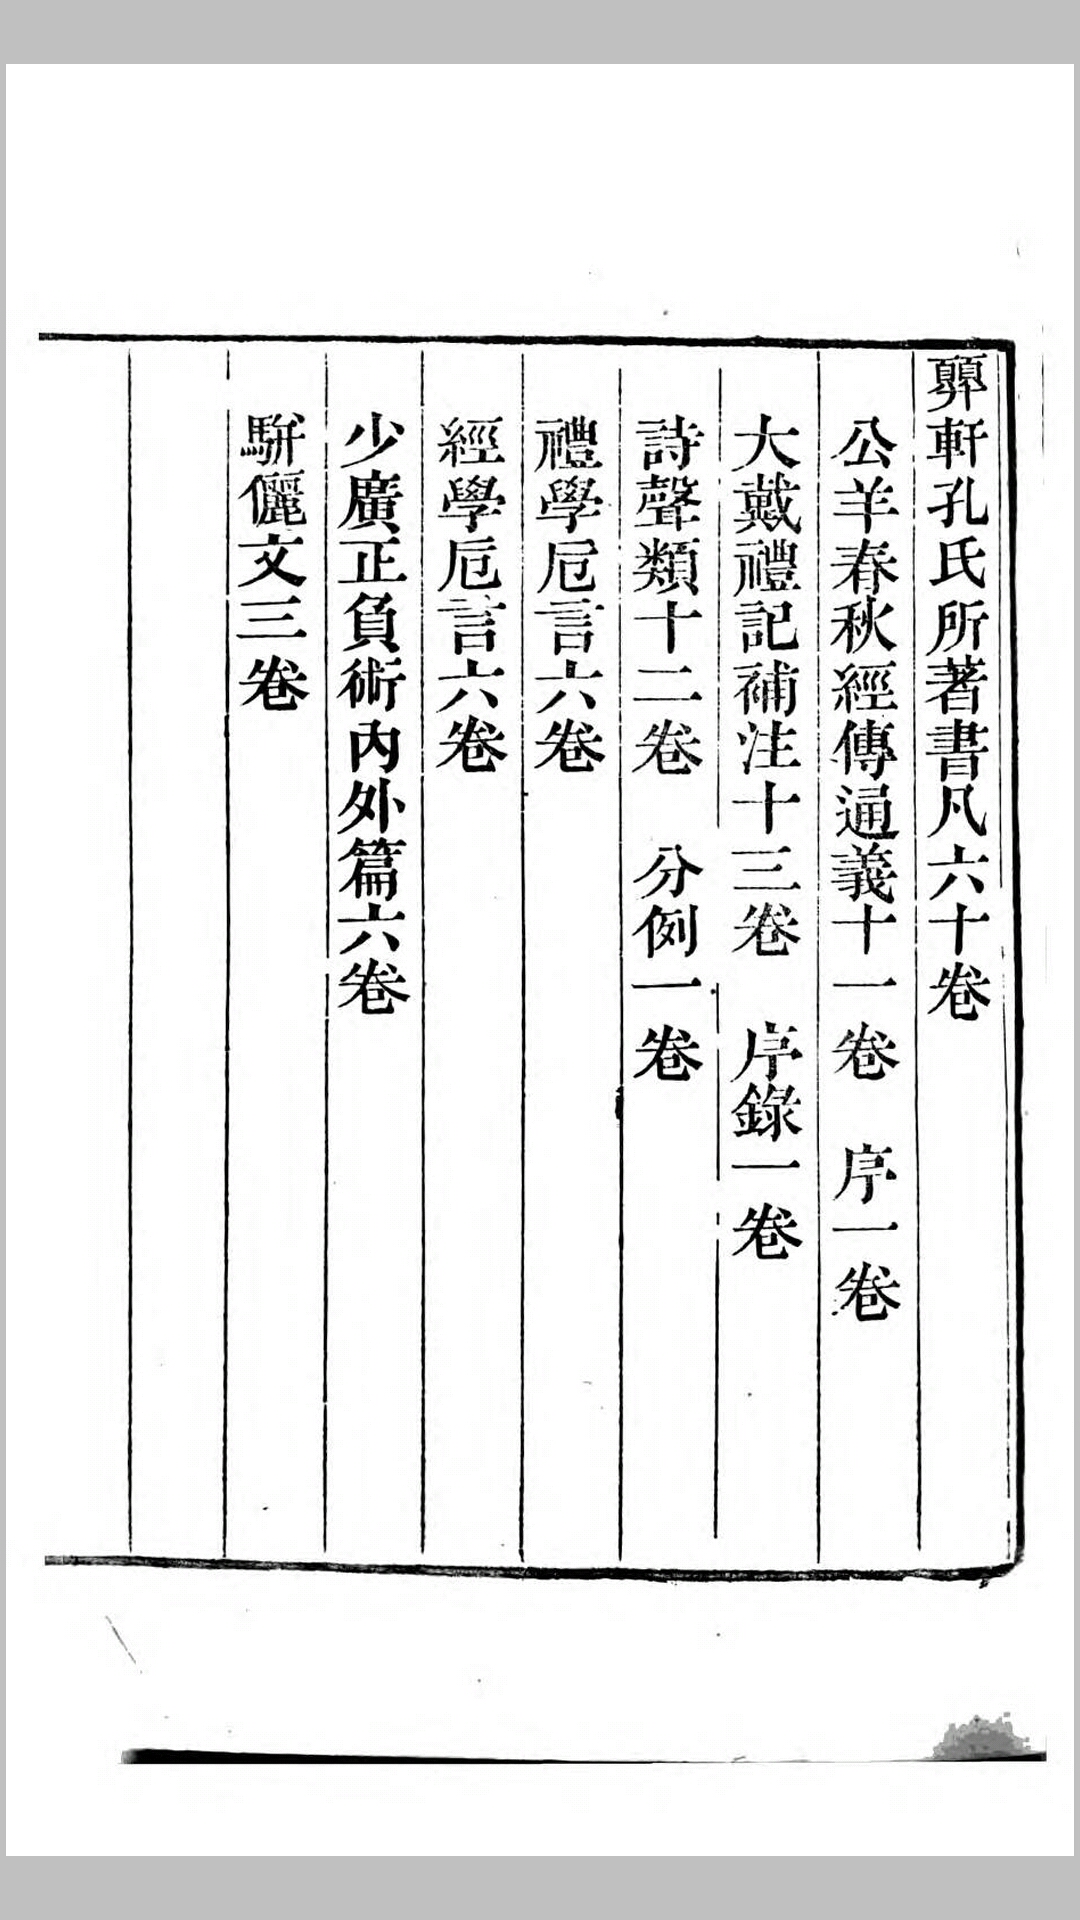 顨軒孔氏所著書凡六十卷
公羊春秋經傳通義十一卷　序一卷
大戴禮記補注十三卷　序錄一卷
詩聲類十二卷　分例一卷
禮學卮言六卷
經學卮言六卷
少廣正負術內外篇六卷
駢儷文三卷